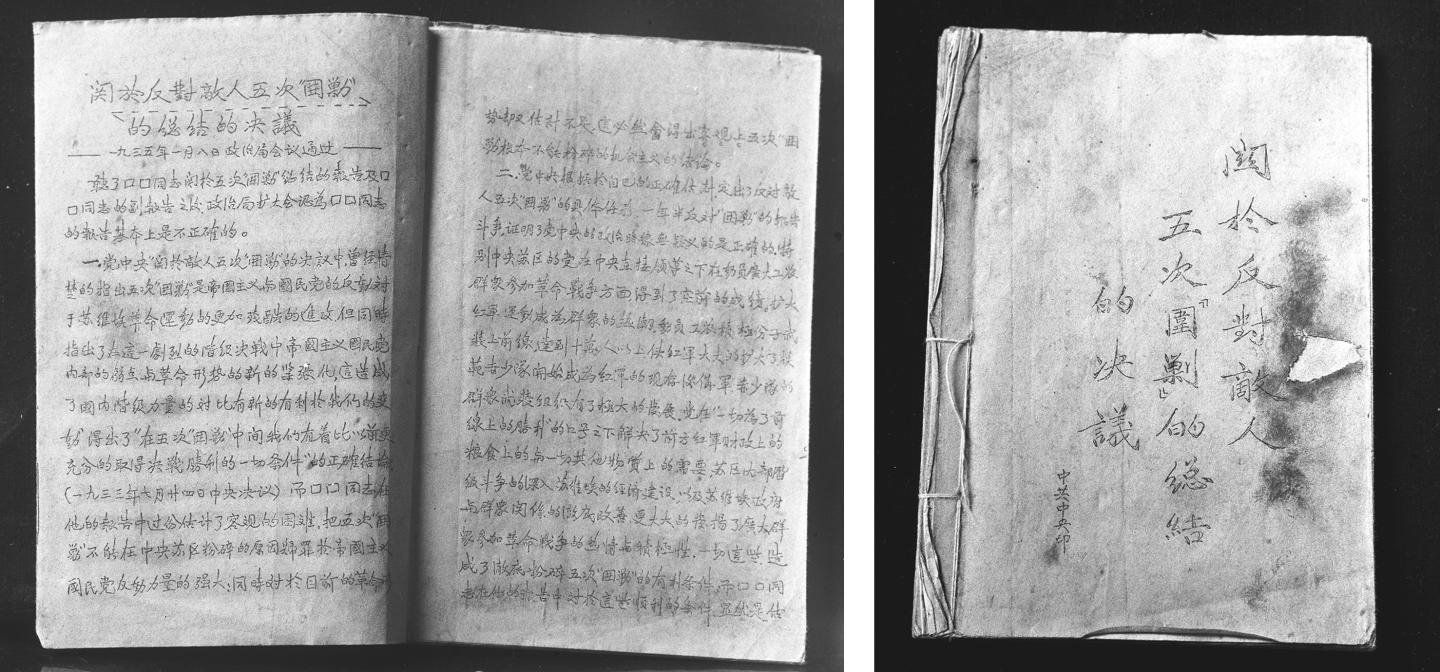 関於反對敵人五次“囲勦”
的総结的决議
一九三五年一月八日政治局会议通过
听了口口同志関於五次“囲勦”総结的报告及口
口同志的副报告之後，政治局扩大会認为口口同志
的报告基本上是不正確的。
一.党中央“関於敵人五次‘囲勦’的决议中，曾经清
楚的指出五次“囲勦”是帝國主义与國民党的反動对
于苏维埃革命运動的更加残酷的進攻，但同時
指出了在這一劇烈的階级决戰中帝國主义國民党
内部的弱点与革命形势的新的紧張化，這造成
了國内階级力量的对比有新的有利於我们的变
動，得出了“在五次‘囲勦’中間我们有着比以前更
充分的取得决戰勝利的一切条件”的正確结論
（一九三三年七月廿四日中央决议）而口口同志在
他的报告中过份估计了客观的困难，把五次“囲
勦”不能在中央苏区粉碎的原因歸罪於帝國主义
國民党反動力量的强大，同時对於目前的革命形
势却又估計不足，這必然會得出客观上五次“囲
勦”根本不能粉碎的机会主义的结論。
二.党中央根据於自己的正確估計定出了反对敵
人五次“囲勦”的具体任务，一年半反对“囲勦”的
斗争証明了党中央的政治路線無疑义的是正確的，特
别中央苏区的党在中央直接領導之下在動員廣大工農
群衆参加革命戰争方面得到了空前的成绩。扩大
红軍運動成為群衆的热潮。動員工農積極分子武
裝上前線達到十萬人以上使红軍大大的扩大了。模
范赤少隊開始成為红軍的现存後備軍。赤少隊的
群衆武裝组织有了極大的發展。党在“一切為了前
線上的勝利”的口号之下解决了前方红軍财政上的
粮食上的与一切其他物質上的需要。苏区内部階
级斗争的深入，苏维埃的经济建设，以及苏维埃政府
与群衆関係的徹底改善，更大大的發揚了廣大群
衆参加革命戰争的热情与積極性，一切這些造
成了徹底粉碎五次“囲勦”的有利条件，而口口同
志在他的报告中对於這些顺利的条件，显然是估
関於反對敵人
五次“圍剿”的総結
的决議
中共中央印